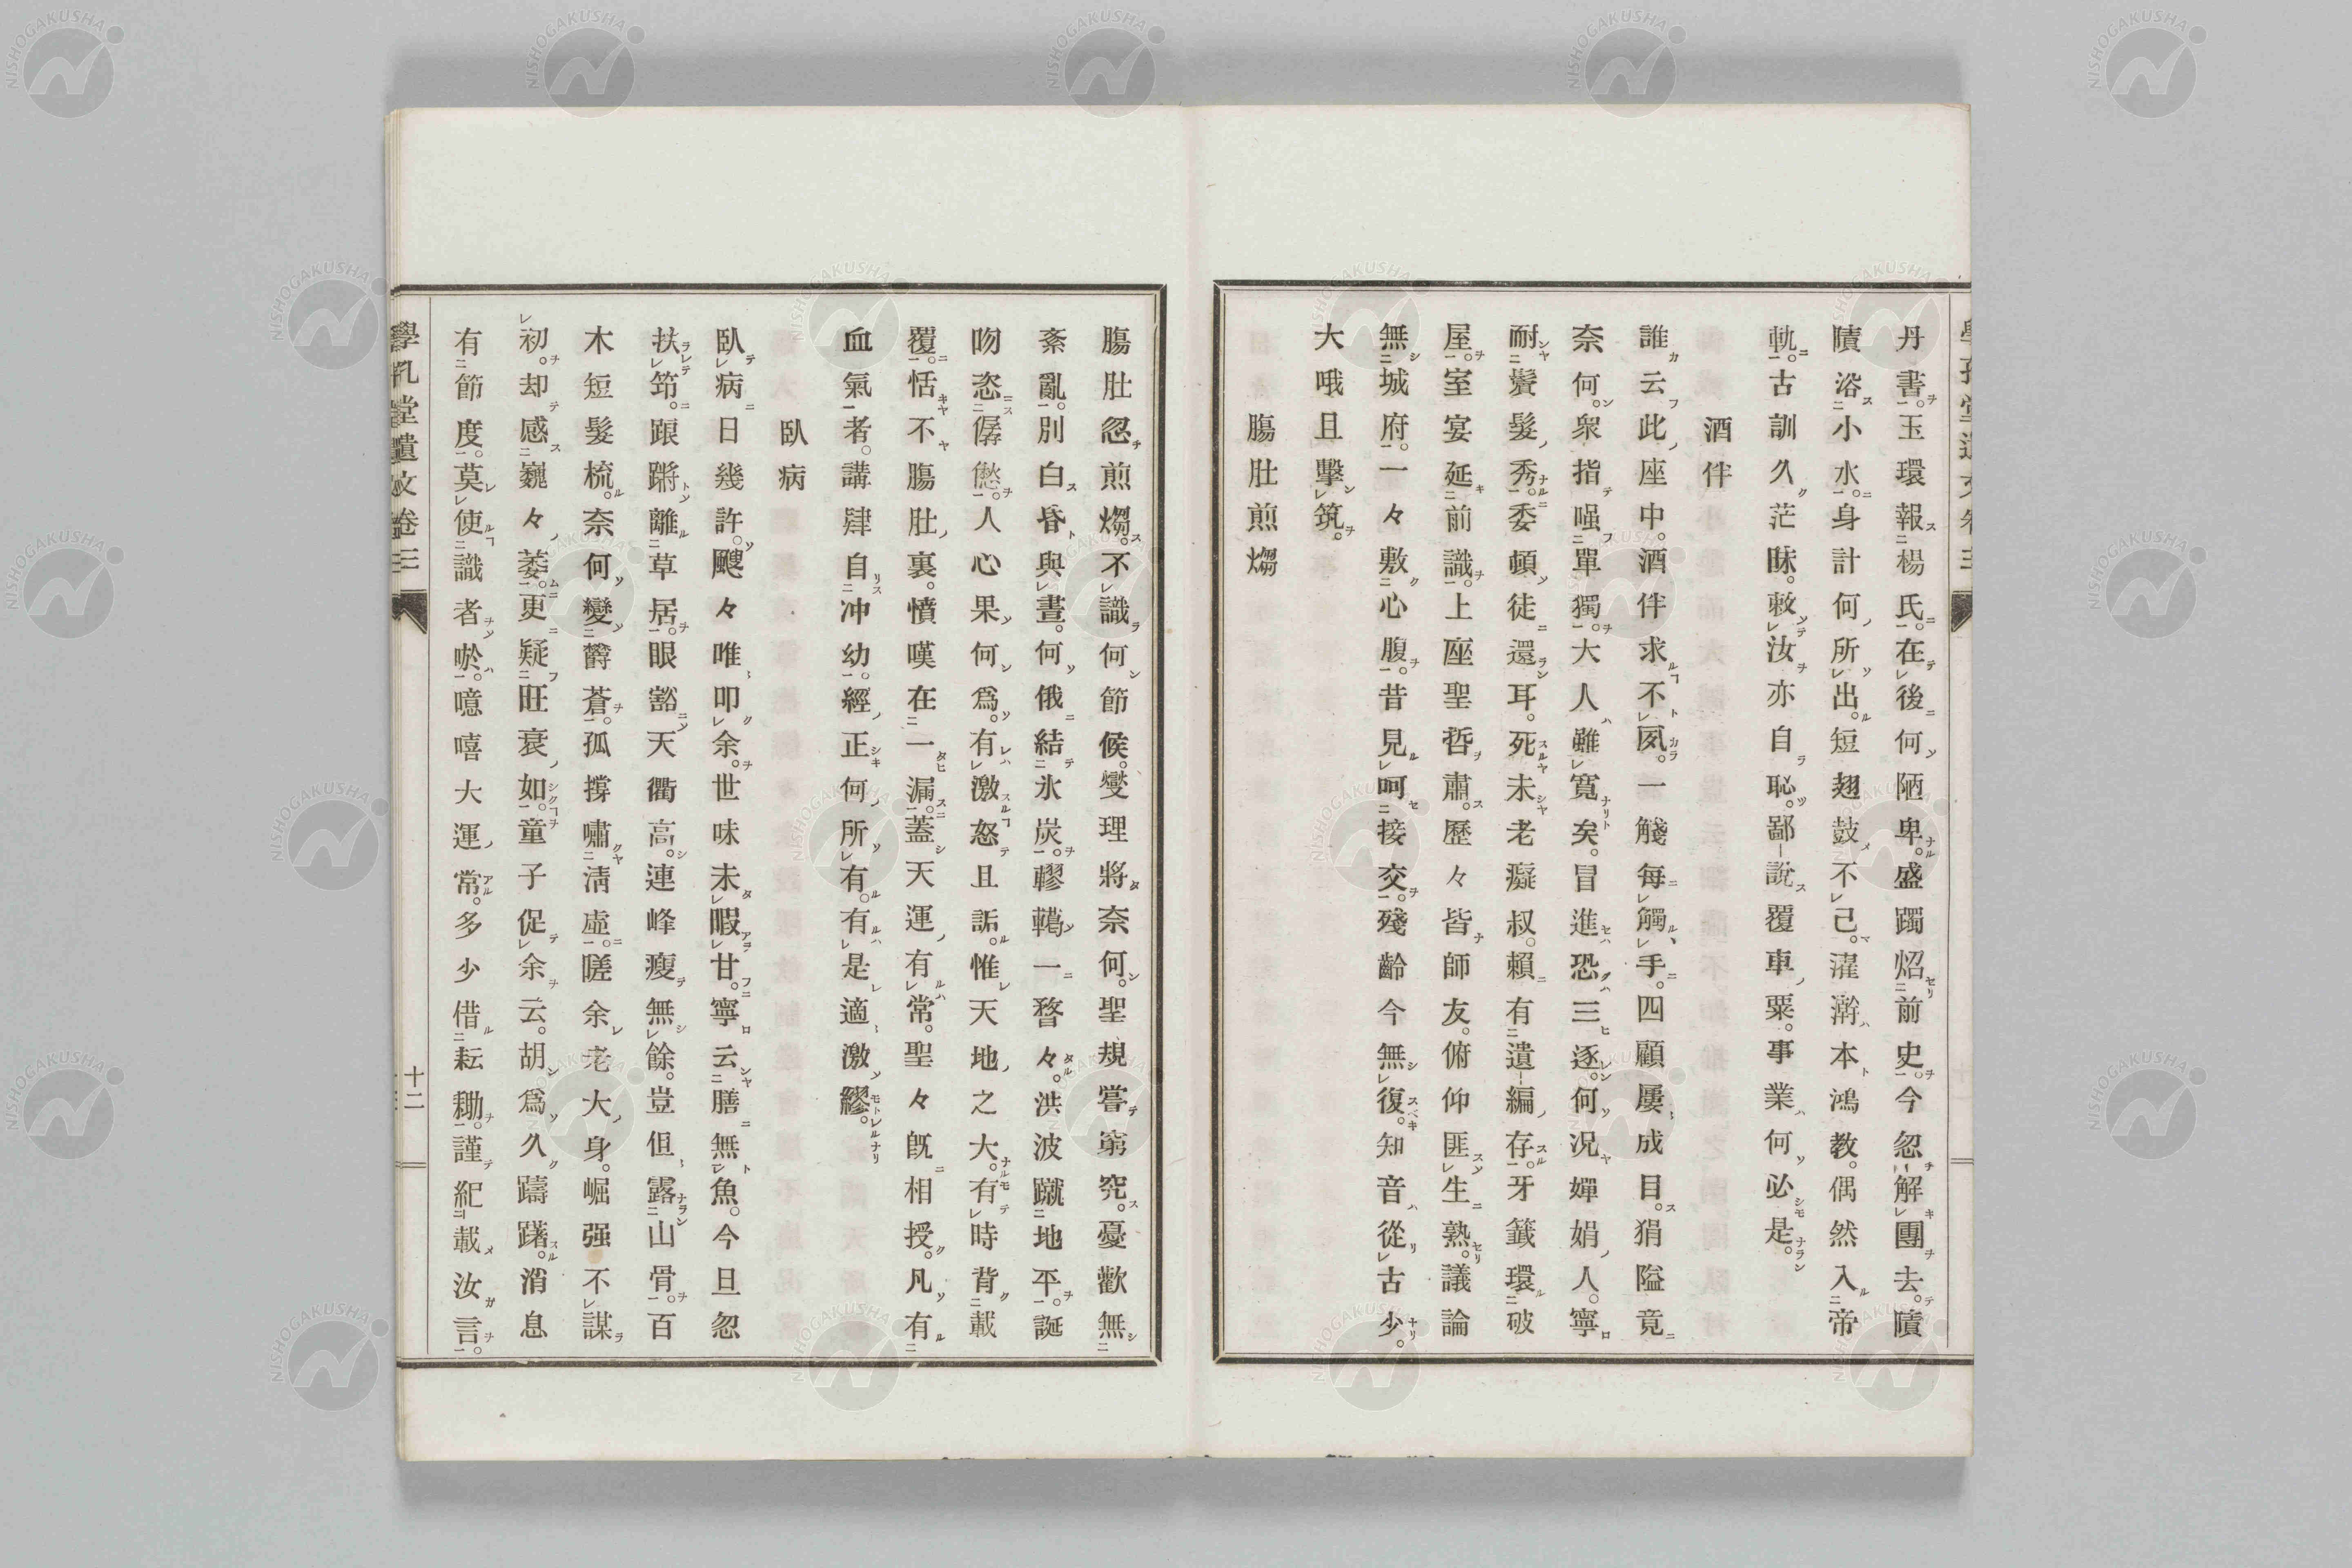 丹書。玉環報楊氏。在後何陋卑。盛躅炤前史。今忽解團去。隤
隤浴小水。身計何所出。短翅鼓不已。濯澣本鴻教。偶然入帝
軌。古訓久茫昧。敎汝亦自恥。鄙說覆車粟。事業何必是。
酒伴
誰云此座中。酒伴求不夙。一觴每觸手。四顧屢成目。狷隘竟
奈何。衆指嗤單獨。大人雖寬矣。冒進恐三逐。何況嬋娟人。寧
耐鬢髮秀。委頓徒還耳。死未老癡叔。賴有遺編存。牙籤環破
屋。室宴延前識。上座聖哲肅。歷々皆師友。俯仰匪生熟。議論
無城府。一々敷心腹。昔見呵接交。殘齡今無復。知音從古少。
大哦且擊筑。
腸肚煎㷌
腸肚忽煎㷌。不識何節候。燮理將奈何。聖規嘗窮究。憂歡無
紊亂。別白昏與晝。何俄結氷炭。轇轕一瞀々。洪波蹴地平。誕
吻恣僝僽。人心果何爲。有激怒且詬。惟天地之大。有時背載
覆。恬不腸肚裏。憤嘆在一漏。蓋天運有常。聖々既相授。凡有
血氣者。講肄自冲幼。經正何所有。有是適激繆。
臥病
臥病日幾許。颼々唯叩余。世味未暇甘。寧云膳無魚。今旦忽
扶筇。踉蹡離草居。眼豁天衢高。連峰瘦無餘。豈但露山骨。百
木短髮梳。奈何變欝蒼。孤撐嘯淸虛。嗟余老大身。崛强不謀
初。却感巍々萎。更疑旺衰如。童子促余云。胡爲久躊躇。消息
有節度。莫使識者唹。噫嘻大運常。多少借耘耡。謹紀載汝言。
學孔堂遺文卷三
十二